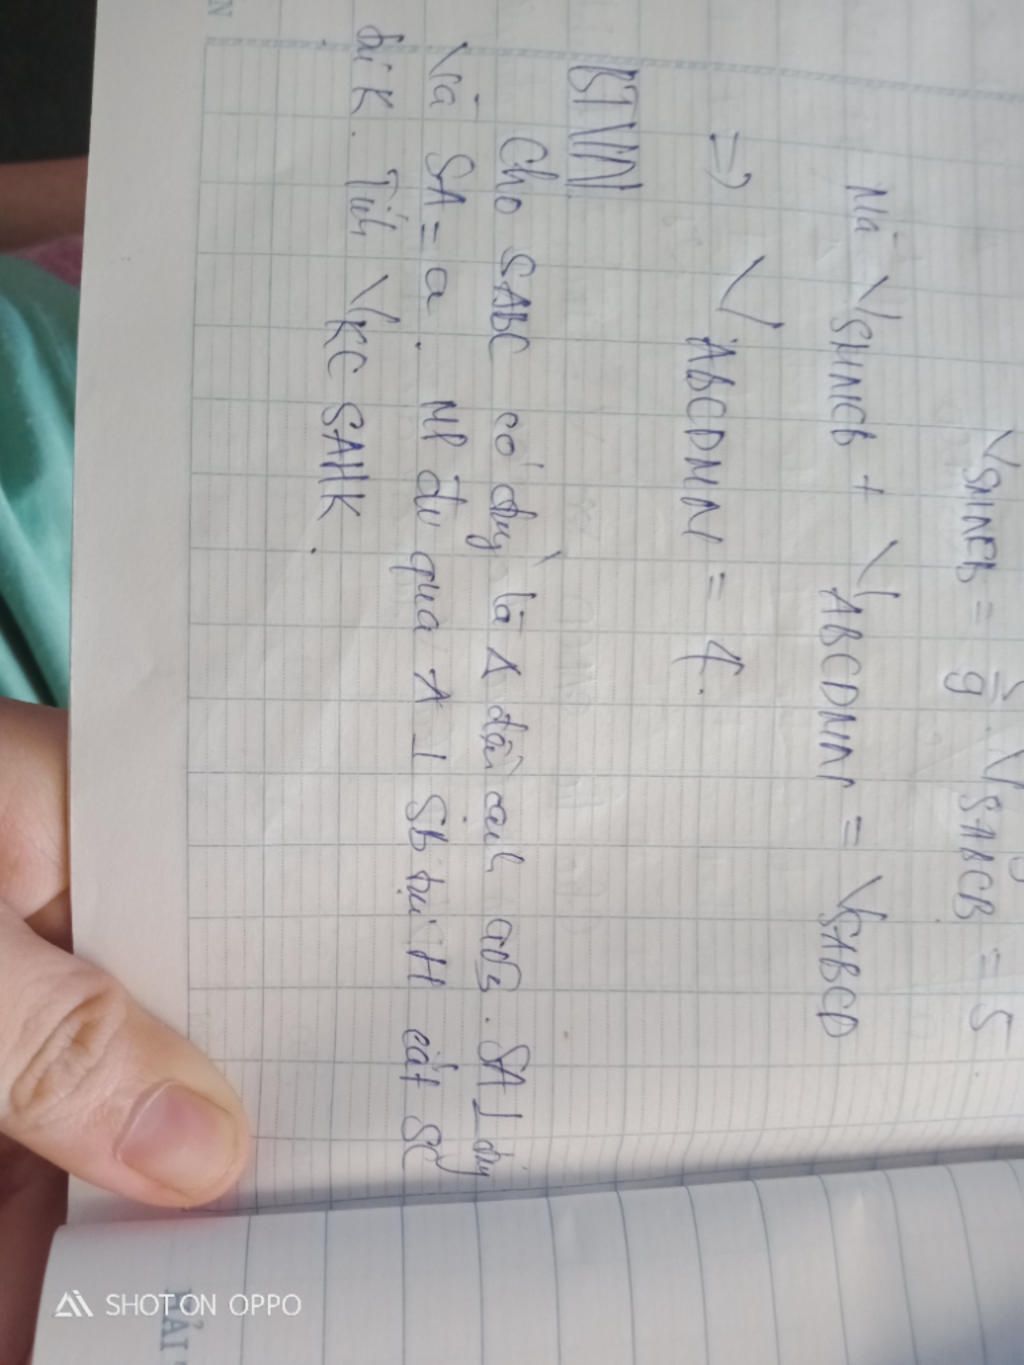 V SMNCB = . V SABCB = 5
Mà V SMNCB + V ABCDMN = V SABCD
=> V ABCDMN = 4.
BTVN
Cho SABC có đáy là Δ đều cạnh a√3. SA ⊥ đáy
Và SA = a. MP đi qua A ⊥ SB tại H cắt SC
tại K. Tính V KC SAHK.
SHOT ON OPPO